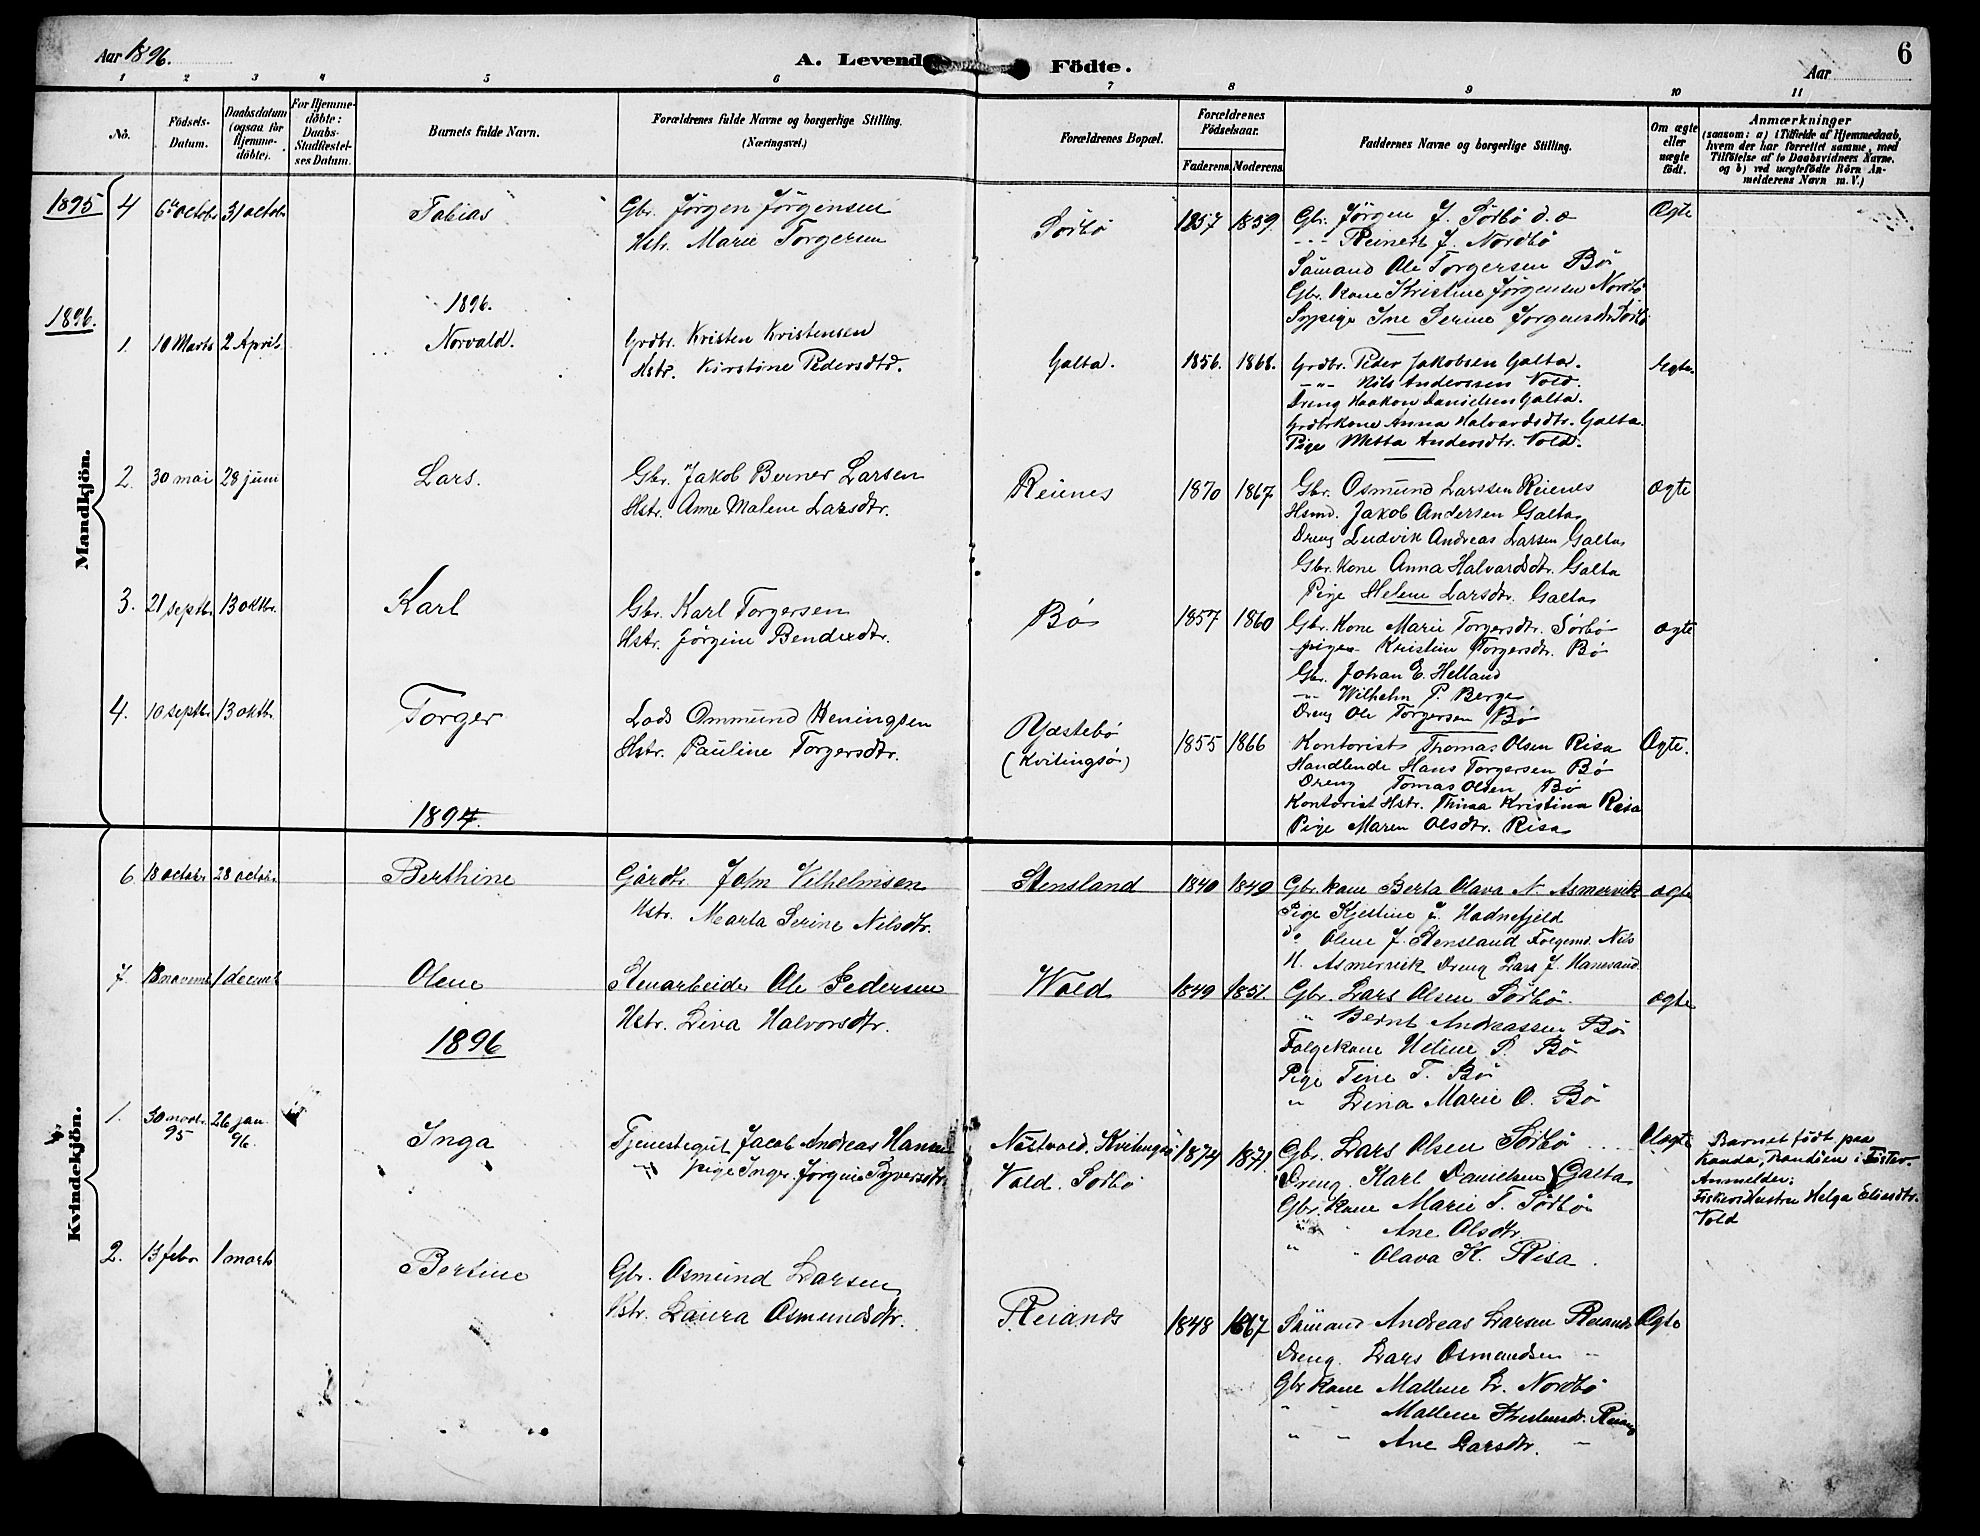 Aar 1896.
A. Levende Födte.
Aar
6
1 2 3 4 5 6 7 8 9 10 11
No.
Födsels-Datum.
Daabsdatum (ogsaa for Hjemme-döbte).
For Hjemme-döbte: Daabs-Stadfæstel-ses Datum.
Barnets fulde Navn.
Forældrenes fulde Navne og borgerlige Stilling.
(Næringsvei.)
Forældrenes Bopæl.
Forældrenes Födselsaar.
Faderens Moderens
Faddernes Navne og borgerlige Stilling.
Om ægte eller uægte födt.
Anmærkninger
(saasom: a) i Tilfælde af Hjemmedaab, hvem der har forrettet samme, med Tilföielse af to Daabsvidners Navne. og b) ved uægtefödte Börn An-melderens Navn m. V.)
Mandkjön.
1895 4 6te octobr 31 octobr Tobias
Gbr. Jörgen Jörgensen
Hstr. Marie Torgersen
Sörbö 1857 1859
Gbr. Jörgen J. Sörbö d. æ
Reinert J. Nordbö
Sömand Ole Torgersen Bö
Gbr. kone Kristine Jörgensen Nordbö
Sypige Ine Serine Jörgensdtr Sörbö
Ægte
1896.
1896.
1. 10 Marts 2 April Norvald.
Grdbr. Kristen Kristensen
Hstr. Kirstine Pedersdtr.
Galta. 1856. 1868.
Grdbr. Peder Jakobsen Galta.
-"- Nils Anderssen Vold.
Dreng Haakon Danielsen Galta.
Grdbrkone Anna Halvardsdtr. Galta.
Pige Metta Andersdtr. Vold.
Ægte
2. 30 mai 28 juni Lars.
Gbr. Jakob Berner Larsen
Hstr. Anne Malene Larsdtr.
Reienes 1870 1867
Gbr. Osmund Larssen Reienes
Hsmd. Jakob Andersen Galta
Dreng Ludvik Andreas Larsen Galta
Gbr. Kone Anna Halvardsdtr. Galta
Pige Helene Larsdtr. Galta
ægte
3. 21 septbr 13 oktbr. Karl
Gbr. Karl Torgersen
Hstr. Jörgine Bendixdtr.
Bö 1857 1860
Gbr. Kone Marie Torgersdtr. Sörbö
pigen Kristine Torgersdtr. Bö
Gbr. Johan E. Helland
-"- Wilhelm P. Berge
Dreng Ole Torgersen Bö
ægte
4. 10 septbr 13 oktbr. Torger
Lods Ommund Heningsen
Hstr. Pauline Torgersdtr.
Ydstebö
(Kvitingsö)
1855 1866
Kontorist Thomas Olsen Risa
Handlende Hans Torgersen Bö
Dreng Tomas Olsen Bö
Kontorist Hstr. Thina Kristina Risa
Pige Maren Olsdtr. Risa
Ægte.
Kvindekjön.
1894.
6 18 octobr. 28 octobr. Berthine
Gårdbr. John Vilhelmsen
Hstr. Marta Serine Nilsdtr.
Stensland 1840 1849
Gbr kone Berta Olava N. Asmervik
Pige Kjestine J. Hadnefjeld
do Olene J. Stensland Folgemd. Nils
H. Asmervik Dreng Lars J. Hanesand
ægte
7. 1 decemb Olene
Stenarbeider Ole Pedersen
Hstr. Lina Halvorsdtr.
Vold 1849 1851.
Gbr. Lars Olsen Sörbö
" Bernt Andreassen Bö
Folgekone Heline P. Bö
Pige Tine T. Bö
" Lina Marie O. Bö
ægte
1896
1. 30 novbr. 95 26 jan. 96. Inga
Tjenestegut Jacob Andreas Hansen
-"- pige Inger Jörgine Syversdtr.
Nestvold. Kvitingsö
Vold. Sörbö
1874 1871.
Gbr. Lars Olsen Sörbö
Dreng. Karl Danielsen Galta
Gbr. kone Marie T. Sörbö
" Ane Olsdtr.
" " Olava K. Risa.
Uægte
Barnet födt paa
Randöen i
Anmelder:
Fiskershustru Helga Eliasdtr.
Vold
2. 13 febr 1 marts Bertine
Gbr. Osmund Larsen
Hstr. Laura Osmundsdtr.
Reianes 1848 1867
Sömand Andreas Larsen Reianes
Dreng. Lars Osmundsen -
Gbr kone Mallene L. Nordbö
" - Mallene Reianes
" - Ane Larsdtr. -
Ægte